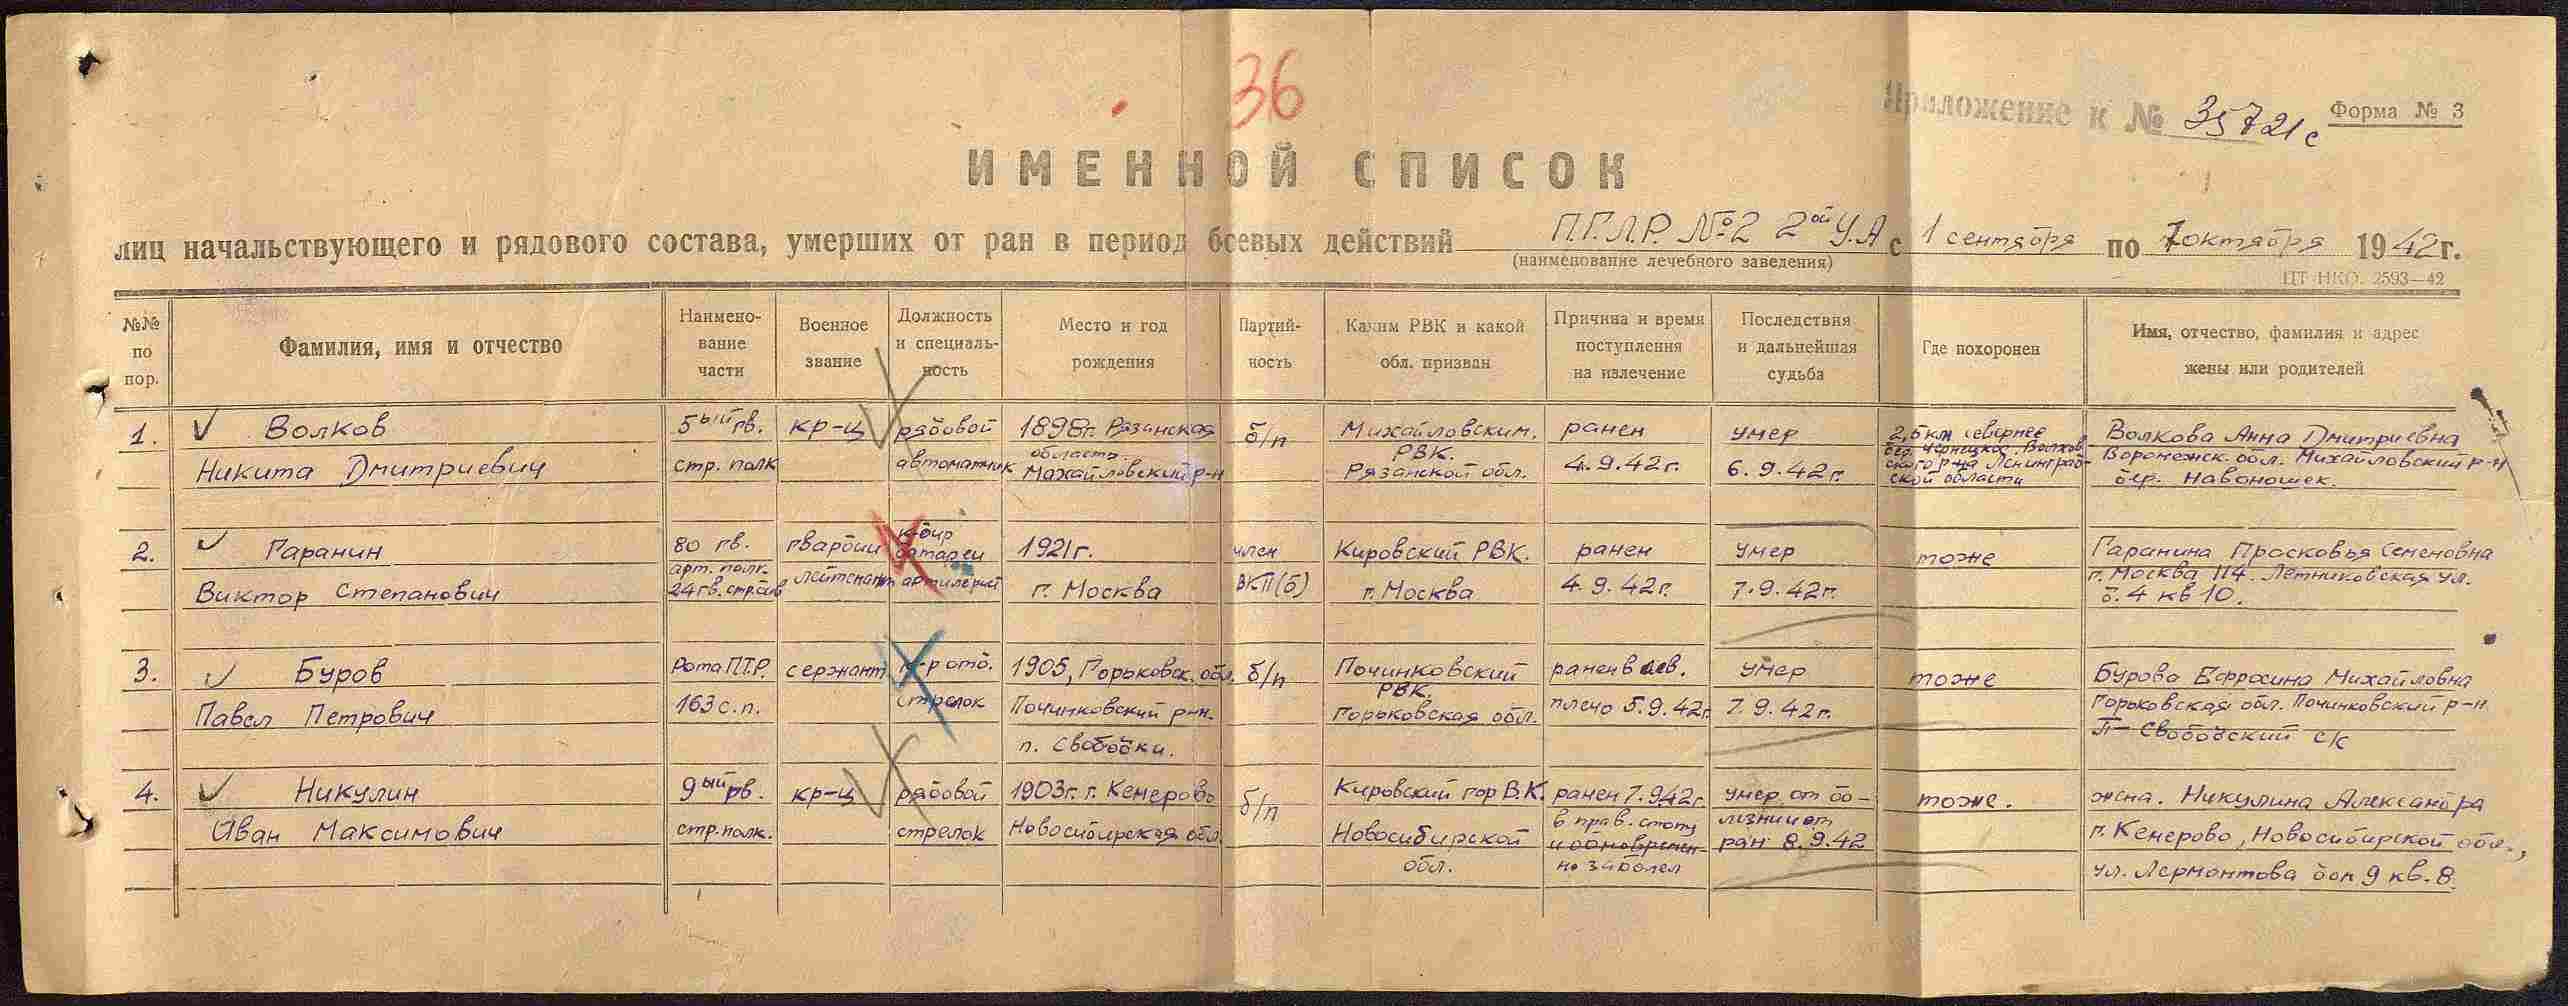 36
Приложение к № 35721с
Форма № 3
ИМЕННОЙ СПИСОК
лиц начальствующего и рядового состава, умерших от ран в период боевых действий П.Г.Л.Р. №2 2ой У.А с 1 сентября по 7 октября 1942 г.
(наименование лечебного заведения)
ЦТ НКО. 2593—42
№№ по пор.
Фамилия, имя и отчество
Наимено-
вание
части
Военное
звание
Должность
и специаль-
ность
Место и год
рождения
Партий-
ность
Каким РВК и какой
обл. призван
Причина и время
поступления
на излечение
Последствия
и дальнейшая
судьба
Где похоронен
Имя, отчество, фамилия и адрес
жены или родителей
1.
Волков
Никита Дмитриевич
5ый гв.
стр. полк
кр-ц
рядовой
автоматчик
1898г. Рязанская
область.
Михайловский р-н
б/п
Михайловским.
РВК.
Рязанской обл.
ранен
4.9.42г.
умер
6.9.42г.
2,5 км севернее
дер. Волхов
ского р-на Ленинград-
ской области
Волкова Анна Дмитриевна
Воронежск. обл. Михайловский р-н
дер.
2.
Гаранин
Виктор Степанович
80 гв.
арт. полк.
24 гв. стр. див
гвардии
лейтенант
к-дир
батареи
артилерист
1921г.
г. Москва
член
ВКП(б)
Кировский РВК.
г. Москва
ранен
4.9.42г.
умер
7.9.42г.
тоже
Гаранина Просковья Семеновна
г. Москва 114. Летниковская ул.
д. 4 кв 10.
3.
Буров
Павел Петрович
Рота П.Т.Р.
163 с.п.
сержант
к-р отд.
стрелок
1905, Горьковск. обл.
Починковский р-н.
п. Свободки.
б/п
Починковский
РВК.
Горьковская обл.
ранен в лев.
плечо 5.9.42г
умер
7.9.42г.
тоже
Бурова Ефросина Михайловна
Горьковская обл. Починковский р-н
П- Свободский ск
4.
Никулин
Иван Максимович
9ый гв.
стр. полк.
кр-ц
рядовой
стрелок
1903г. г. Кемерово
Новосибирская обл.
б/п
Кировский гор В.К.
Новосибирской
обл.
ранен 7.9.42г.
в прав. стопу
и одновремен-
но заболел
умер от бо-
лезни от
ран 8.9.42
тоже.
жена. Никулина Александра
г. Кемерово, Новосибирской обл.,
ул. Лермонтова дом 9 кв. 8.